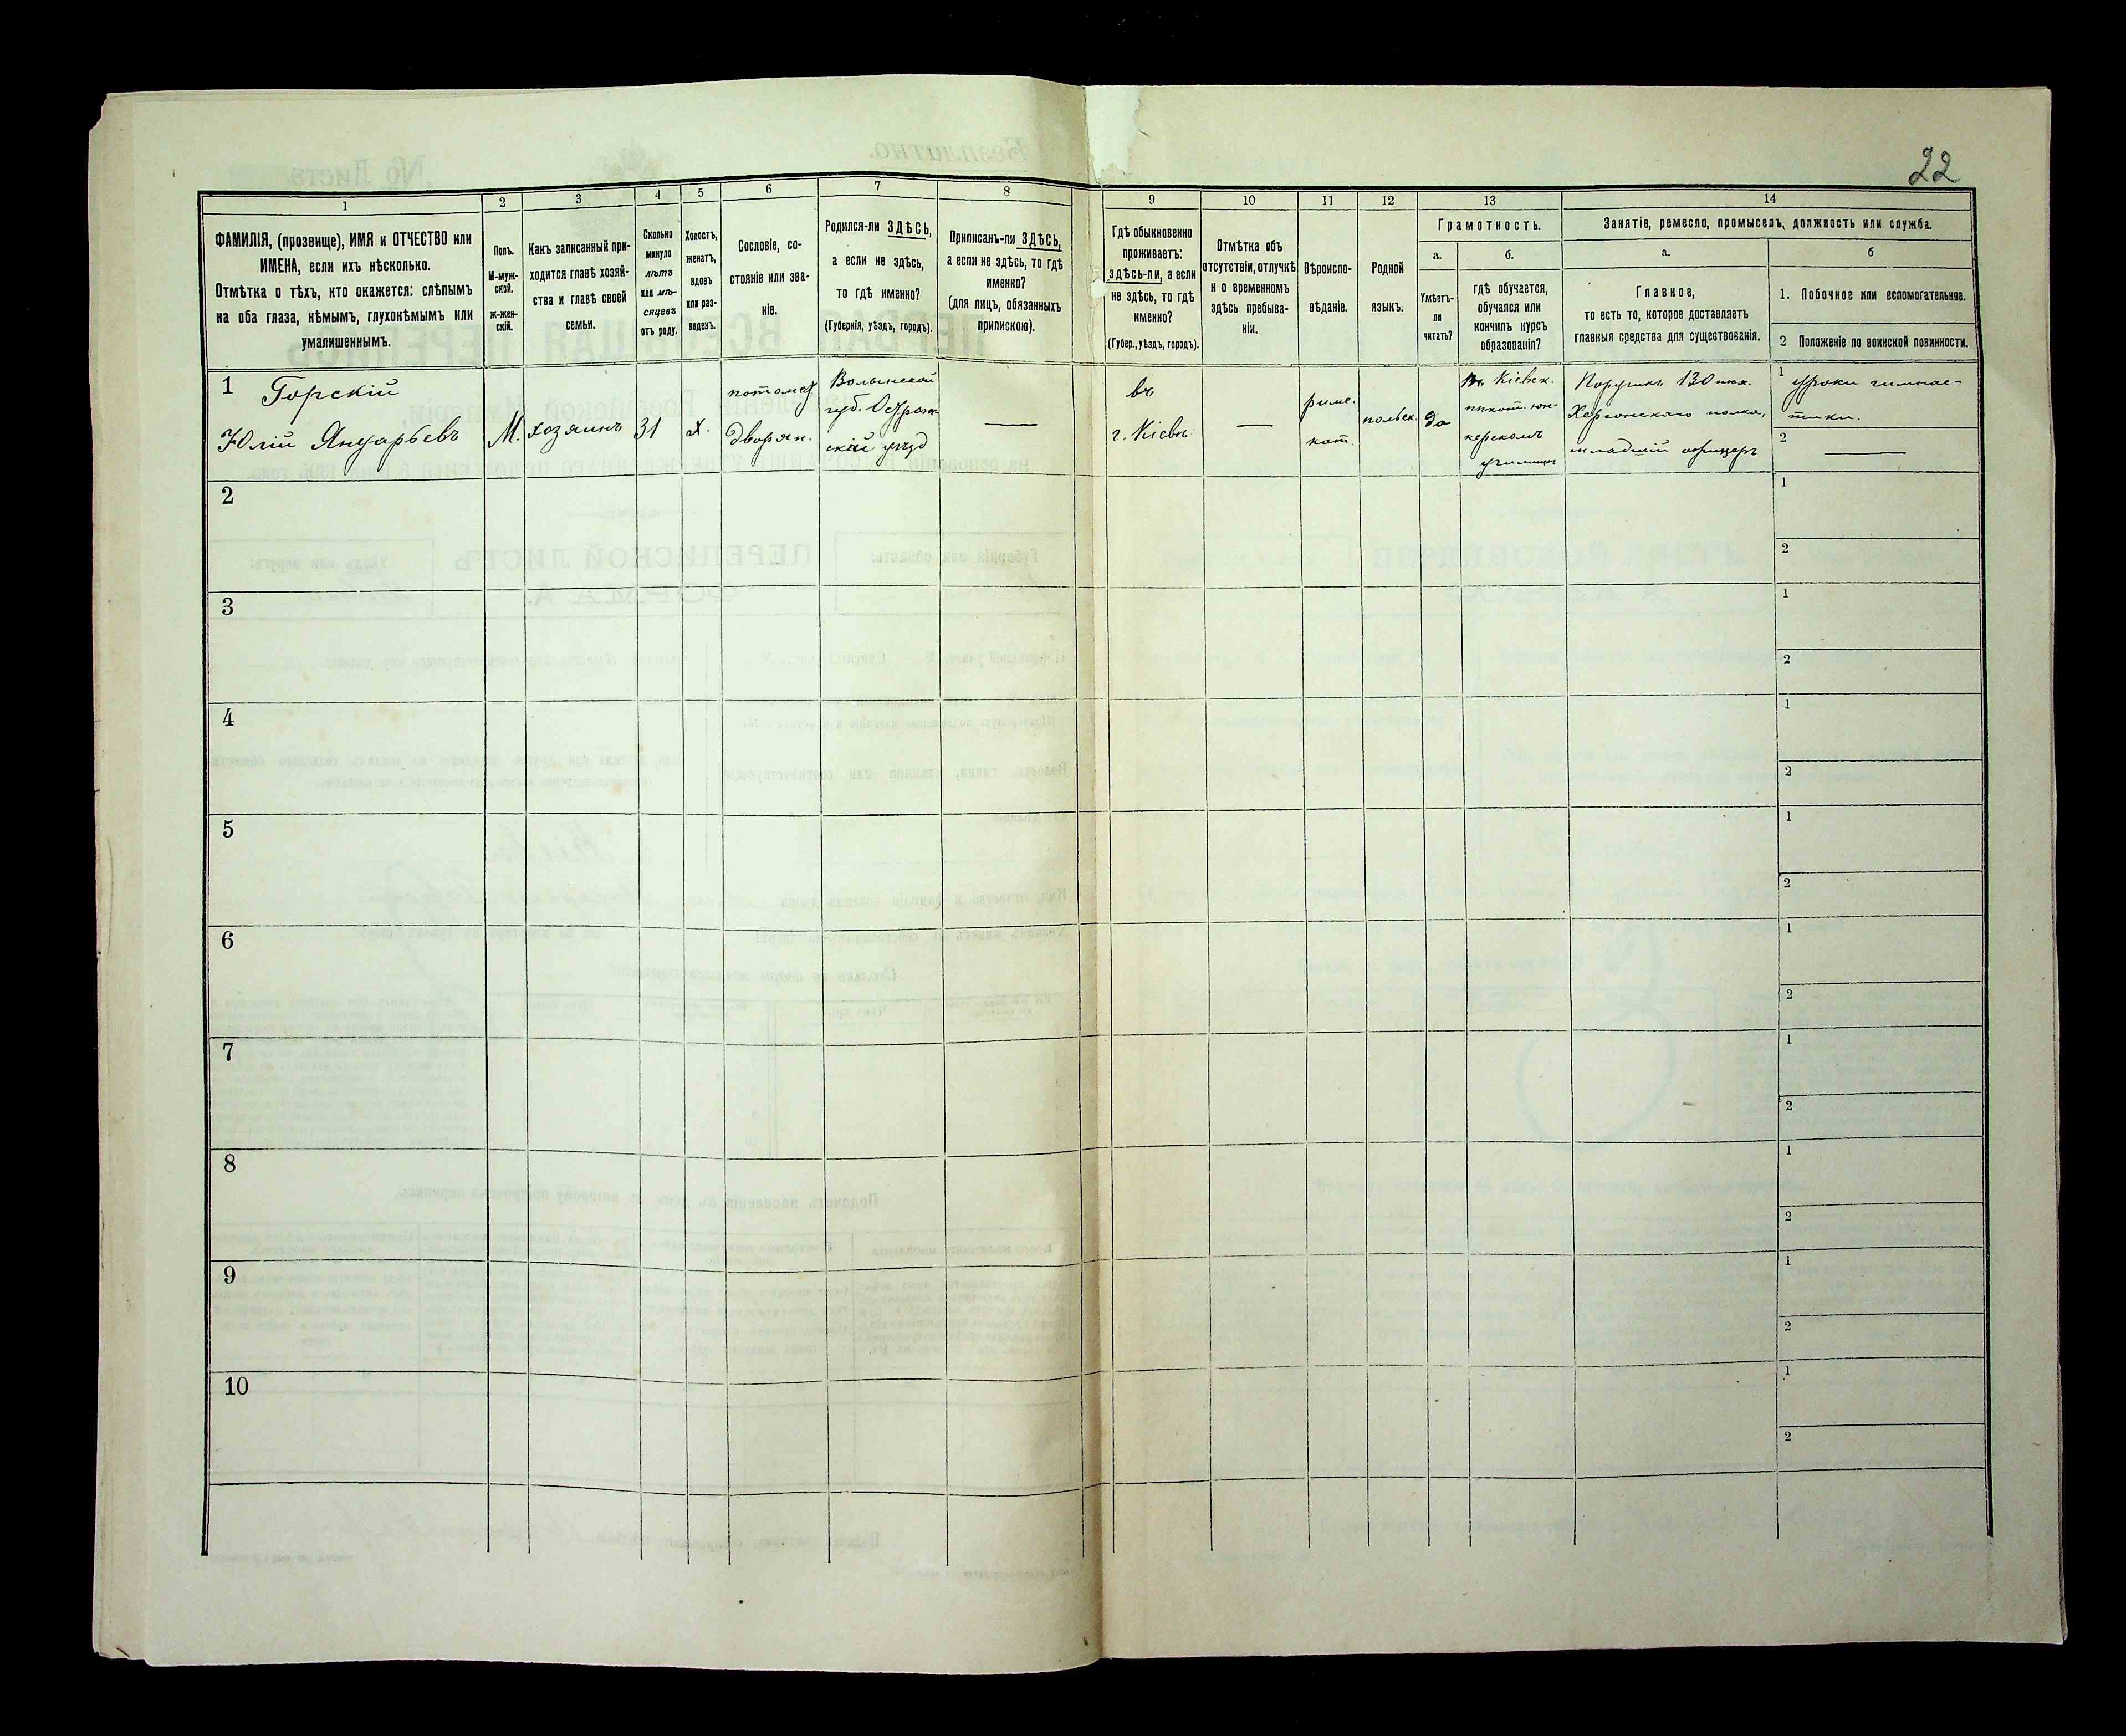 22
1
2
3
4
5
6
7
8
9
10
11
12
13
14
ФАМИЛІЯ, (прозвище), ИМЯ и ОТЧЕСТВО или
ИМЕНА, если ихъ нѣсколько.
Отмѣтка о тѣхъ, кто окажется: слѣпымъ
на оба глаза, нѣмымъ, глухонѣмымъ или
умалишеннымъ.
Полъ.
М-муж-
ской.
Ж-жен-
скій.
Какъ записанный при-
ходится главѣ хозяй-
ства и главѣ своей
семьи.
Сколько
минуло
лѣтъ
или мѣ-
сяцевъ
отъ роду.
Холостъ,
женатъ,
вдовъ
или раз-
веденъ.
Сословіе, со-
стояніе или зва-
ніе.
Родился-ли ЗДѢСЬ,
а если не здѣсь,
то гдѣ именно?
(Губернія, уѣздъ, городъ).
Приписанъ-ли ЗДѢСЬ,
а если не здѣсь, то гдѣ
именно?
(для лицъ, обязанныхъ
припискою).
Гдѣ обыкновенно
проживаетъ:
здѣсь-ли, а если
не здѣсь, то гдѣ
именно?
(Губер., уѣздъ, городъ).
Отмѣтка объ
отсутствіи, отлучкѣ
и о временномъ
здѣсь пребыва-
ніи.
Вѣроиспо-
вѣданіе.
Родной
языкъ.
Грамотность.
а.
Умѣетъ-
ли
читать?
б.
гдѣ обучается,
обучался или
кончилъ курсъ
образованія?
Занятіе, ремесло, промыселъ, должность или служба.
а.
Главное,
то есть то, которое доставляетъ
главныя средства для существованія.
б
1. Побочное или вспомогательное.
2 Положеніе по воинской повинности.
1 Горскій
Юлій Януарьевъ
М.
хозяинъ
31
х.
потомст
дворян.
Волынской
губ. Острож
скій уѣзд
въ
г. Кіевѣ
римс.
кат.
польск.
да
въ Кіевск.
пѣхот. юн-
керскомъ
училищѣ
Поручикъ 130 пѣх.
Херсонскаго полка,
младшій офицеръ
1 уроки гимнас-
тики.
2
2
1
2
3
1
2
4
1
2
5
1
2
6
1
2
7
1
2
8
1
2
9
1
2
10
1
2